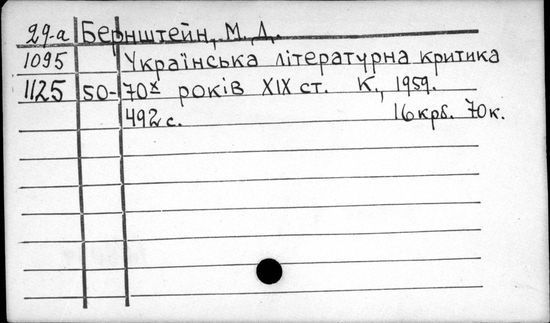 29-а Бернштейн, М. Д.
1095 Українська літературна критика
1125 50-70х років XIX ст. К., 1959.
492 с. 16 крб. 70 к.